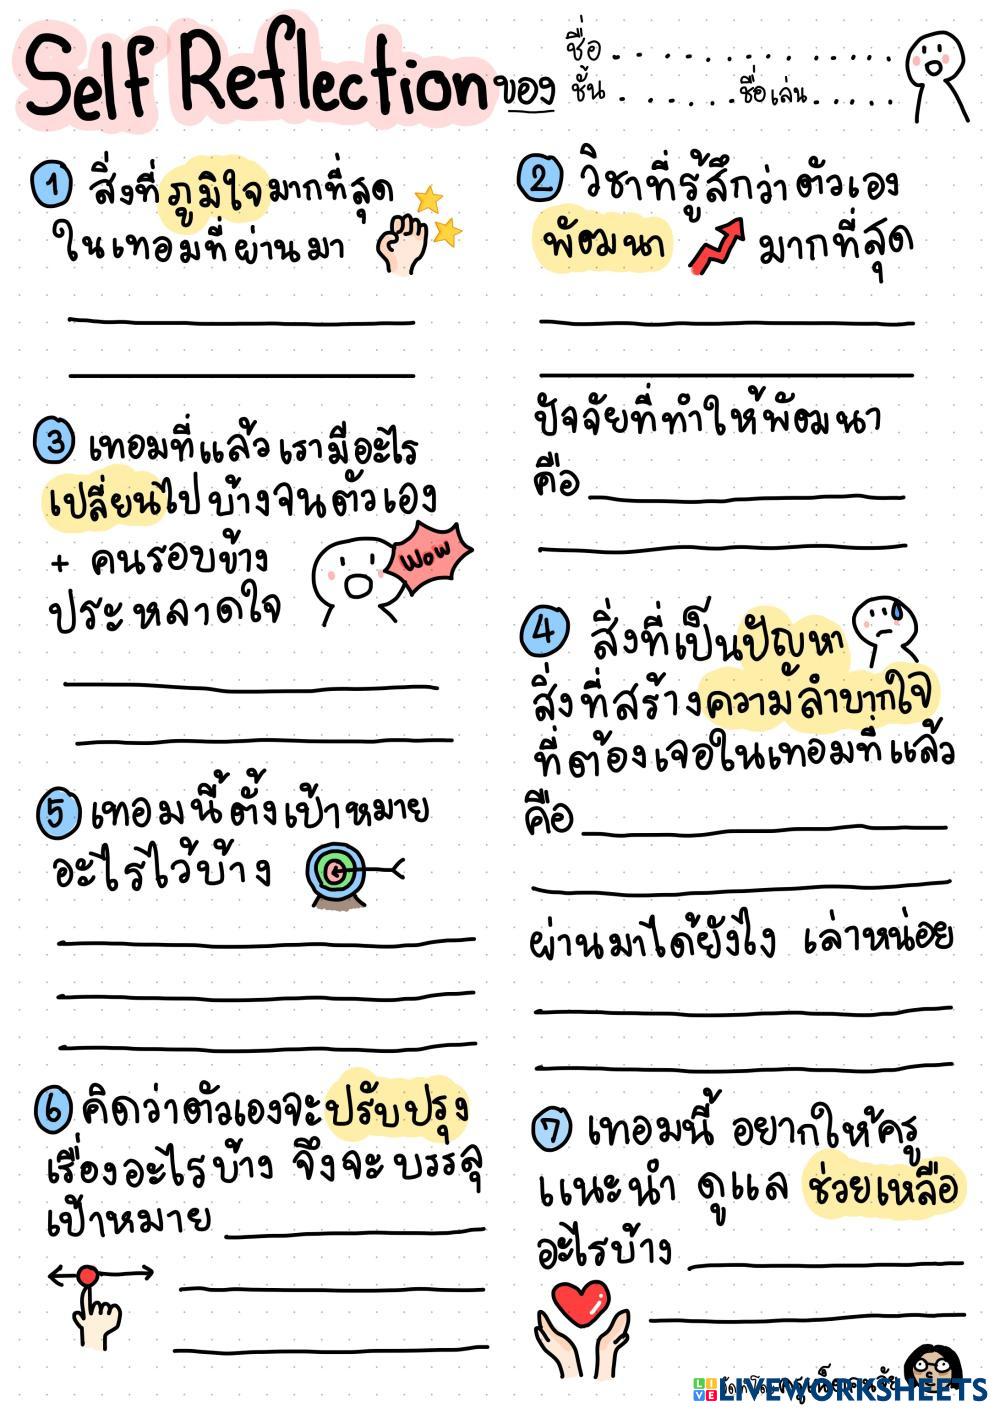 Self Reflection ของ
ชื่อ
ชั้น ชื่อเล่น
1 สิ่งที่ภูมิใจมากที่สุด
ในเทอมที่ผ่านมา
2 วิชาที่รู้สึกว่าตัวเอง
พัฒนา มากที่สุด
ปัจจัยที่ทำให้พัฒนา
คือ
3 เทอมที่แล้วเรามีอะไร
เปลี่ยนไปบ้างจนตัวเอง
+ คนรอบข้าง
ประหลาดใจ
WOW
4 สิ่งที่เป็นปัญหา
สิ่งที่สร้างความลำบากใจ
ที่ต้องเจอในเทอมที่แล้ว
คือ
ผ่านมาได้ยังไง เล่าหน่อย
5 เทอมนี้ตั้งเป้าหมาย
อะไรไว้บ้าง
6 คิดว่าตัวเองจะปรับปรุง
เรื่องอะไรบ้าง จึงจะบรรลุ
เป้าหมาย
7 เทอมนี้ อยากให้ครู
แนะนำ ดูแล ช่วยเหลือ
อะไรบ้าง
LIVE LIVEWORKSHEETS